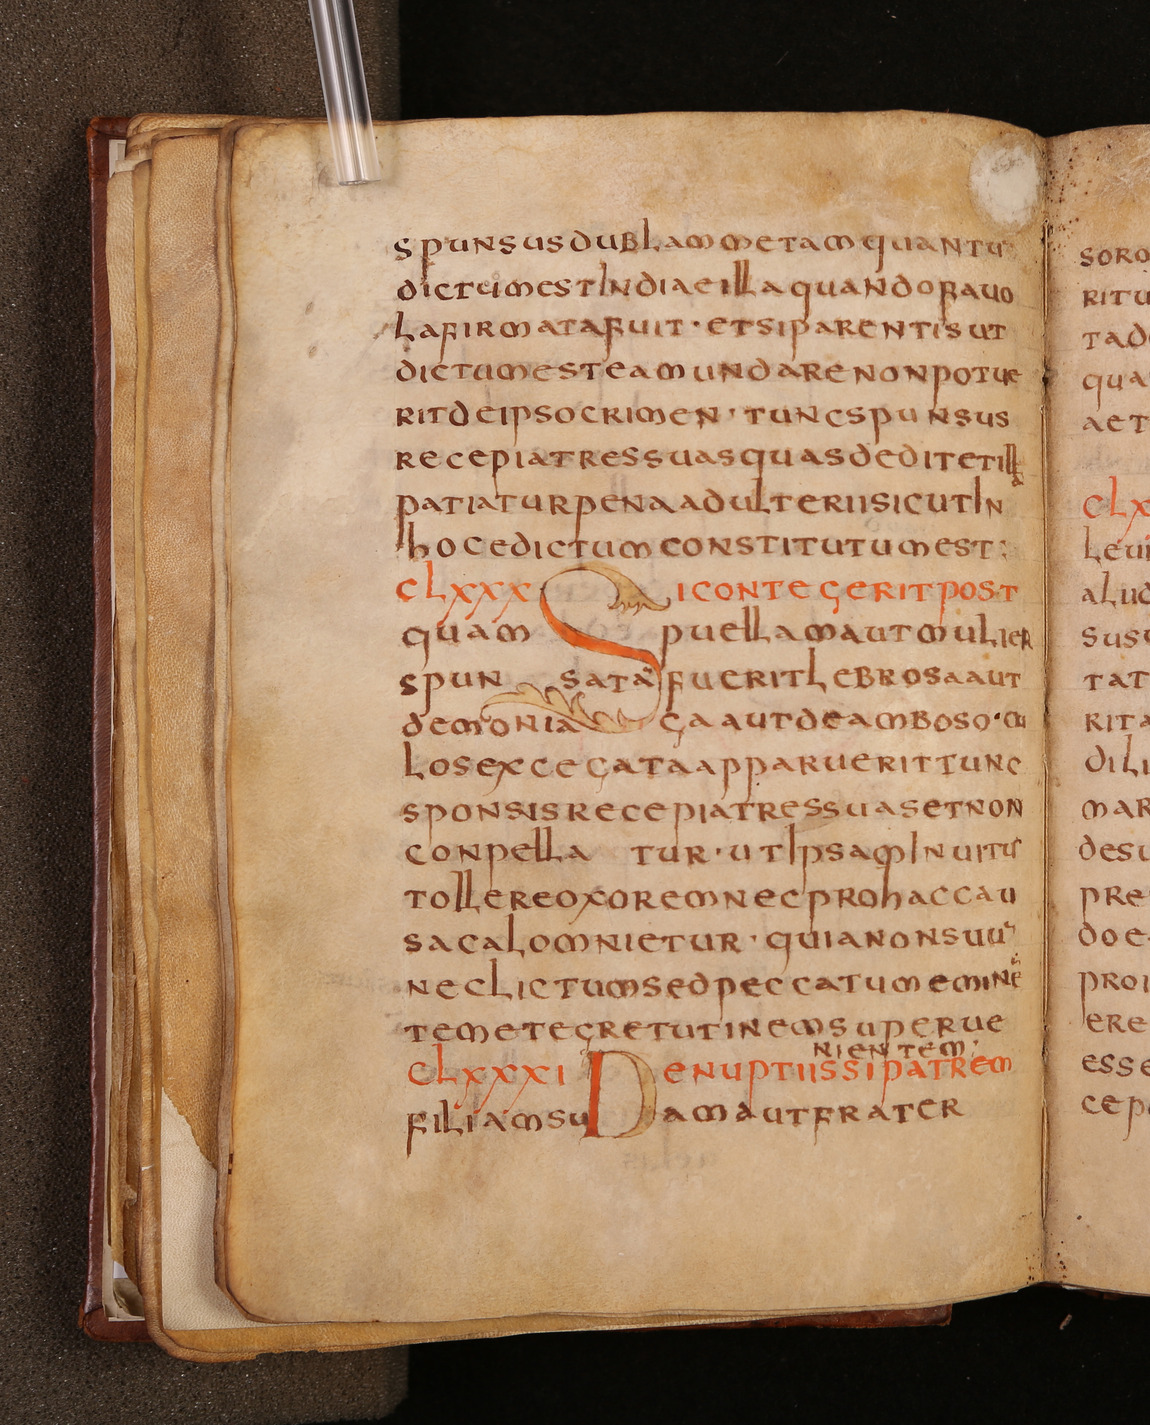 spunsus dublam metam quantu
dictum est In dia e illa quando fabuo
la firmata fuit · et si parentis ut
dictum est eam undare non potue
rit de ipso crimen · tunc spunsus
recepiat res suas quas dedit et illa
patiatur pena adulterii sicut In
hoc edictum constitutum est :
CLXXX Si contegerit post
quam puellam aut mulier
spunsata fuerit lebrosa aut
demoniaga aut de amboso · cu
los excegata apparuerit tunc
sponsis recepiat res suas et non
conpellatur · ut Ipsam Inuitus
tollere oxorem nec pro hac cau
sa calomnietur · quia non suu
neclictum sed peccatum emine
tem et egretutinem superue
nientem ·
CLXXXI De nuptiis si patrem
filiam suam aut frater
soro
ritu
tad
qua
aet
CLX
leui
alud
sus
tat
rita
dili
mar
desu
pre
doe
proi
ere
esse
cep